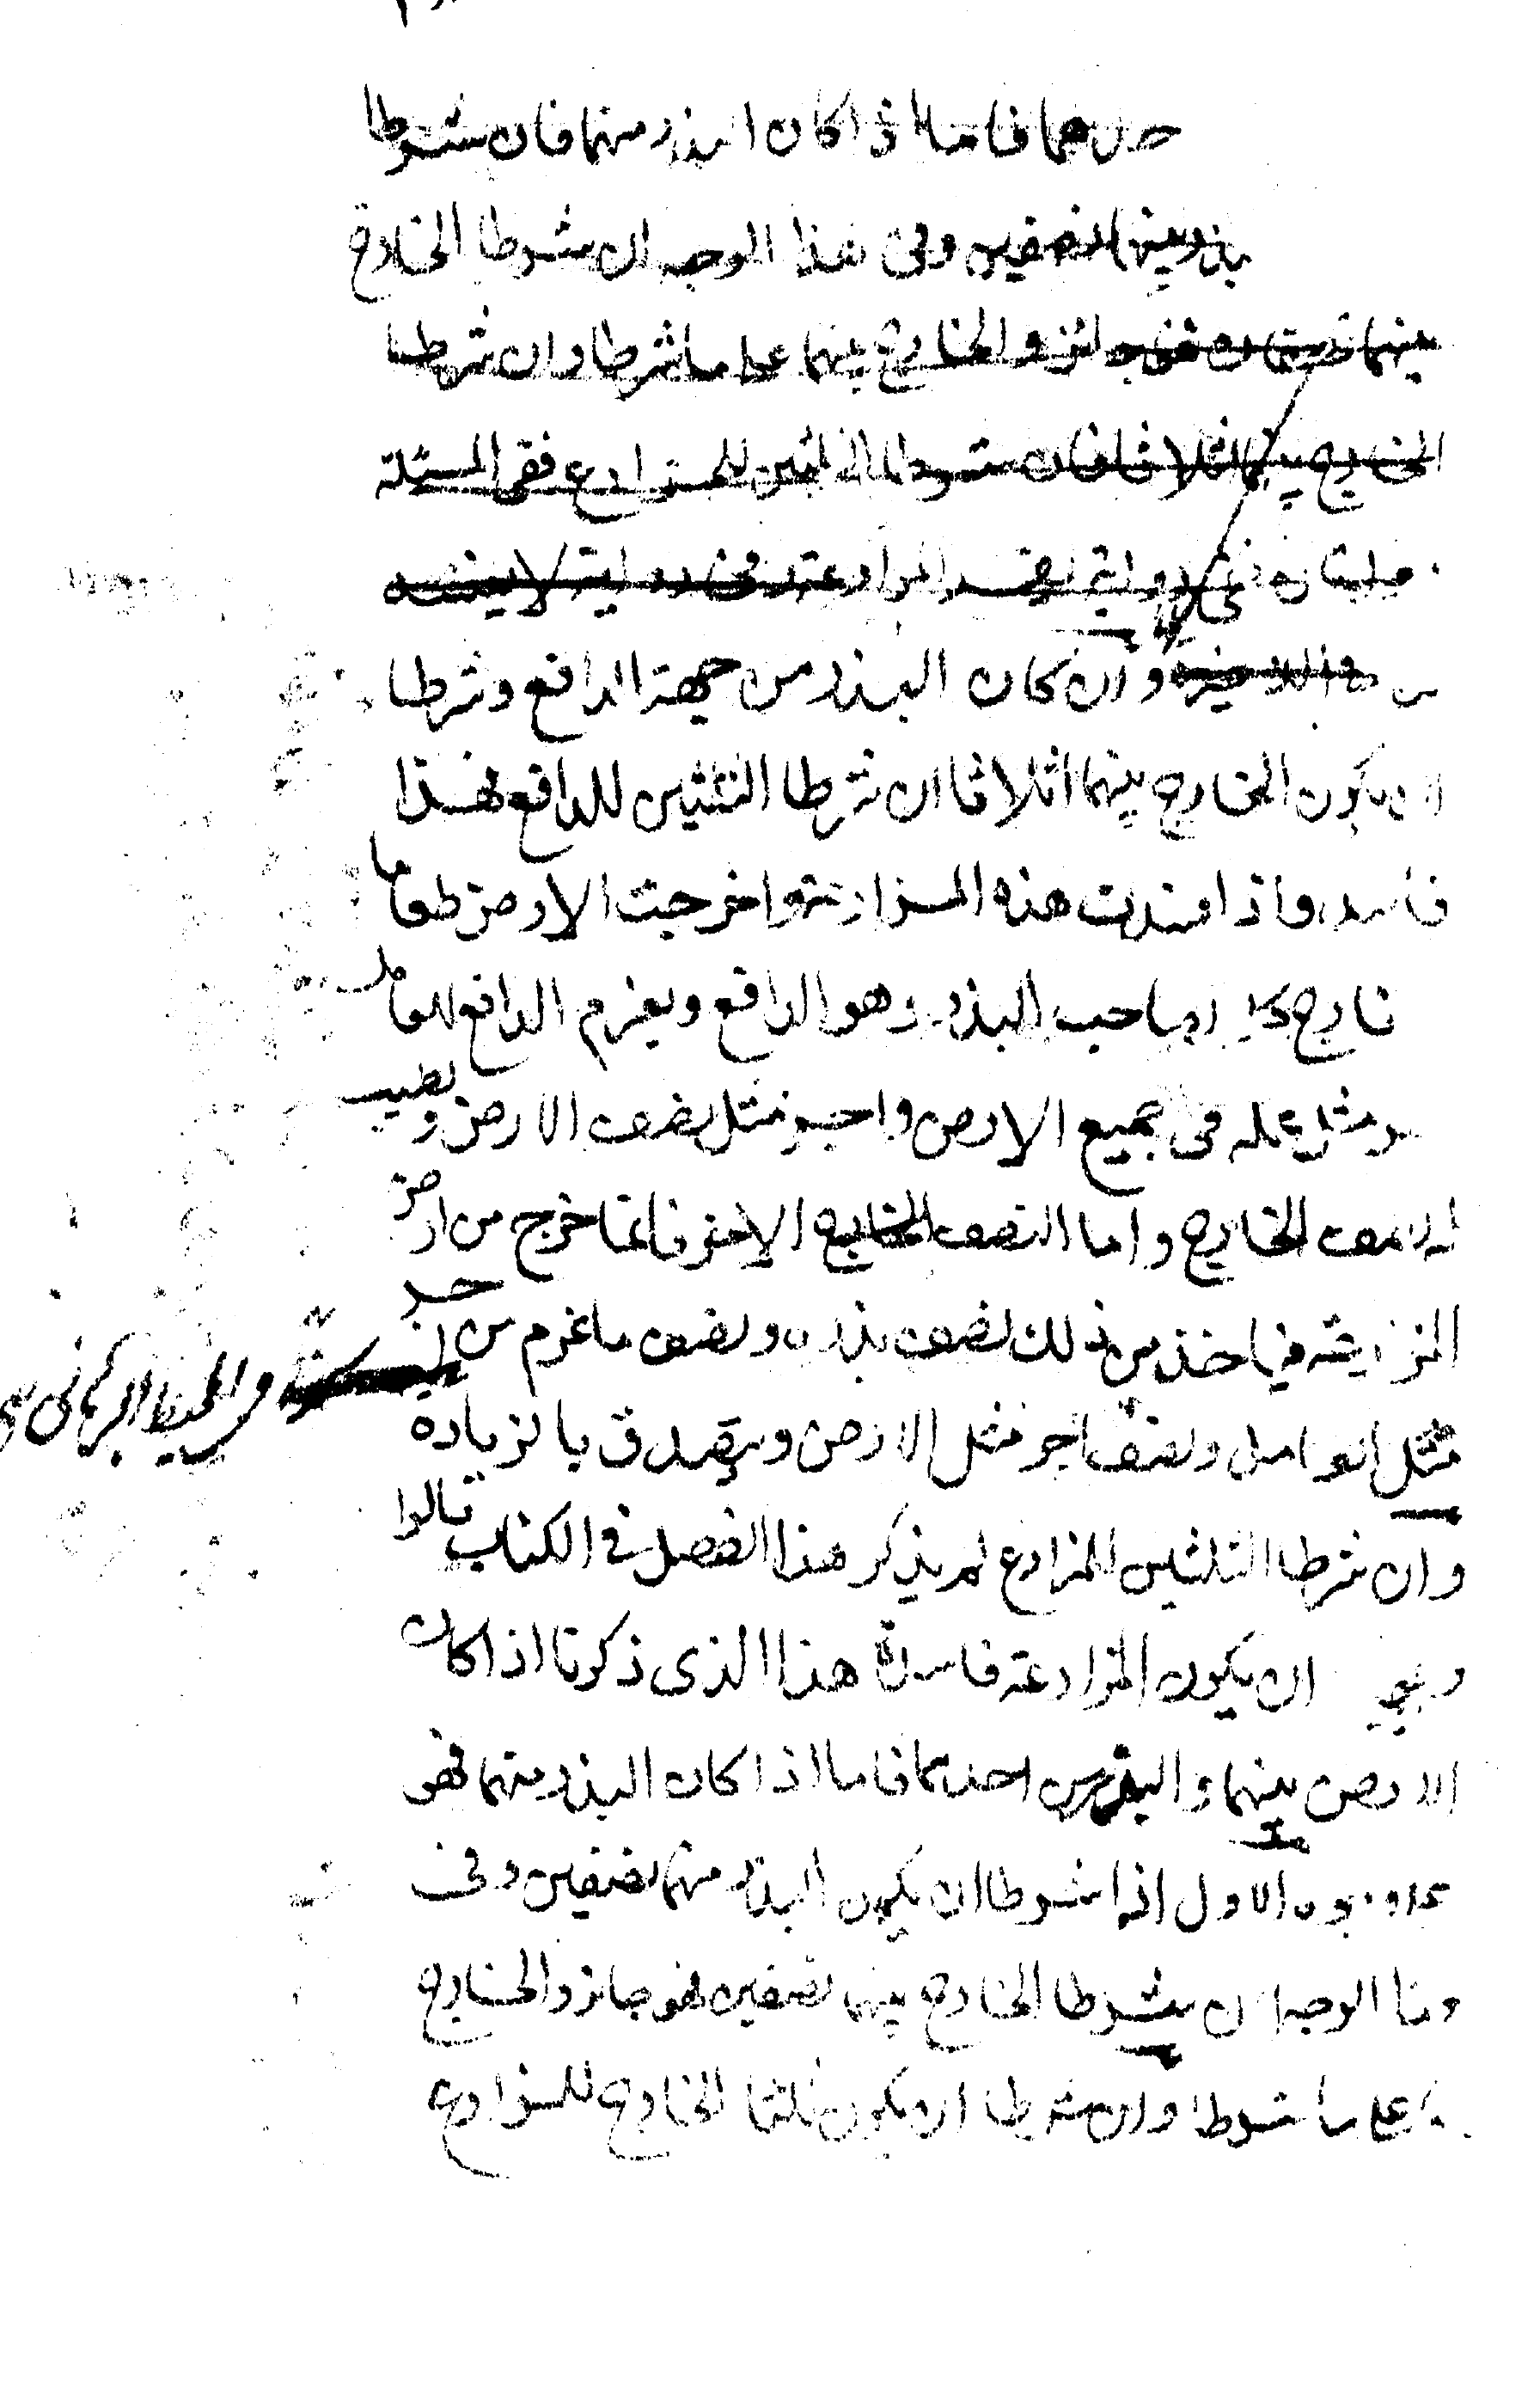 فاما اذا كان البذر منهما فان شرطا
نصفين وفى هذا الوجه ان شرطا الخارج
بينهما نصفان فهو جائز والخارج بينهما على ما شرطا وان شرطا
الخارج بينهما اثلاثا فان شرطا الثلثين للمزارع ففى المسئلة
روايتان فى رواية يفسد المزارعة وفى رواية لا يفسد
وان كان البذر من جهة الدافع وشرطا
ان يكون الخارج بينهما اثلاثا ان شرطا الثلثين للدافع فهذا
فاسد واذا فسدت هذه المزارعة واخرجت الارض طعاما
فالخارج كله لصاحب البذر وهو الدافع ويغرم الدافع للعامل
اجر مثل عمله فى جميع الارض واجر مثل نصف الارض ويطيب
له نصف الخارج واما النصف الاخر فانما خرج من ارض
المزارعة فياخذ من ذلك نصف بذره ونصف ما غرم من اجر
مثل العوامل ونصف اجر مثل الارض ويتصدق بالزيادة
من المحيط البرهانى
وان شرطا الثلثين للمزارع لم يذكر هذا الفصل فى الكتاب قالوا
وينبغى ان يكون المزارعة فاسدة هذا الذى ذكرنا اذا كان
الارض بينهما والبذر من احدهما فاما اذا كان البذر منهما فهو
على وجوه الاول اذا شرطا ان يكون البذر منهما نصفين وفى
هذا الوجه ان شرطا الخارج بينهما نصفين فهو جائز والخارج
على ما شرطا وان شرطا ان يكون ثلثا الخارج للمزارع